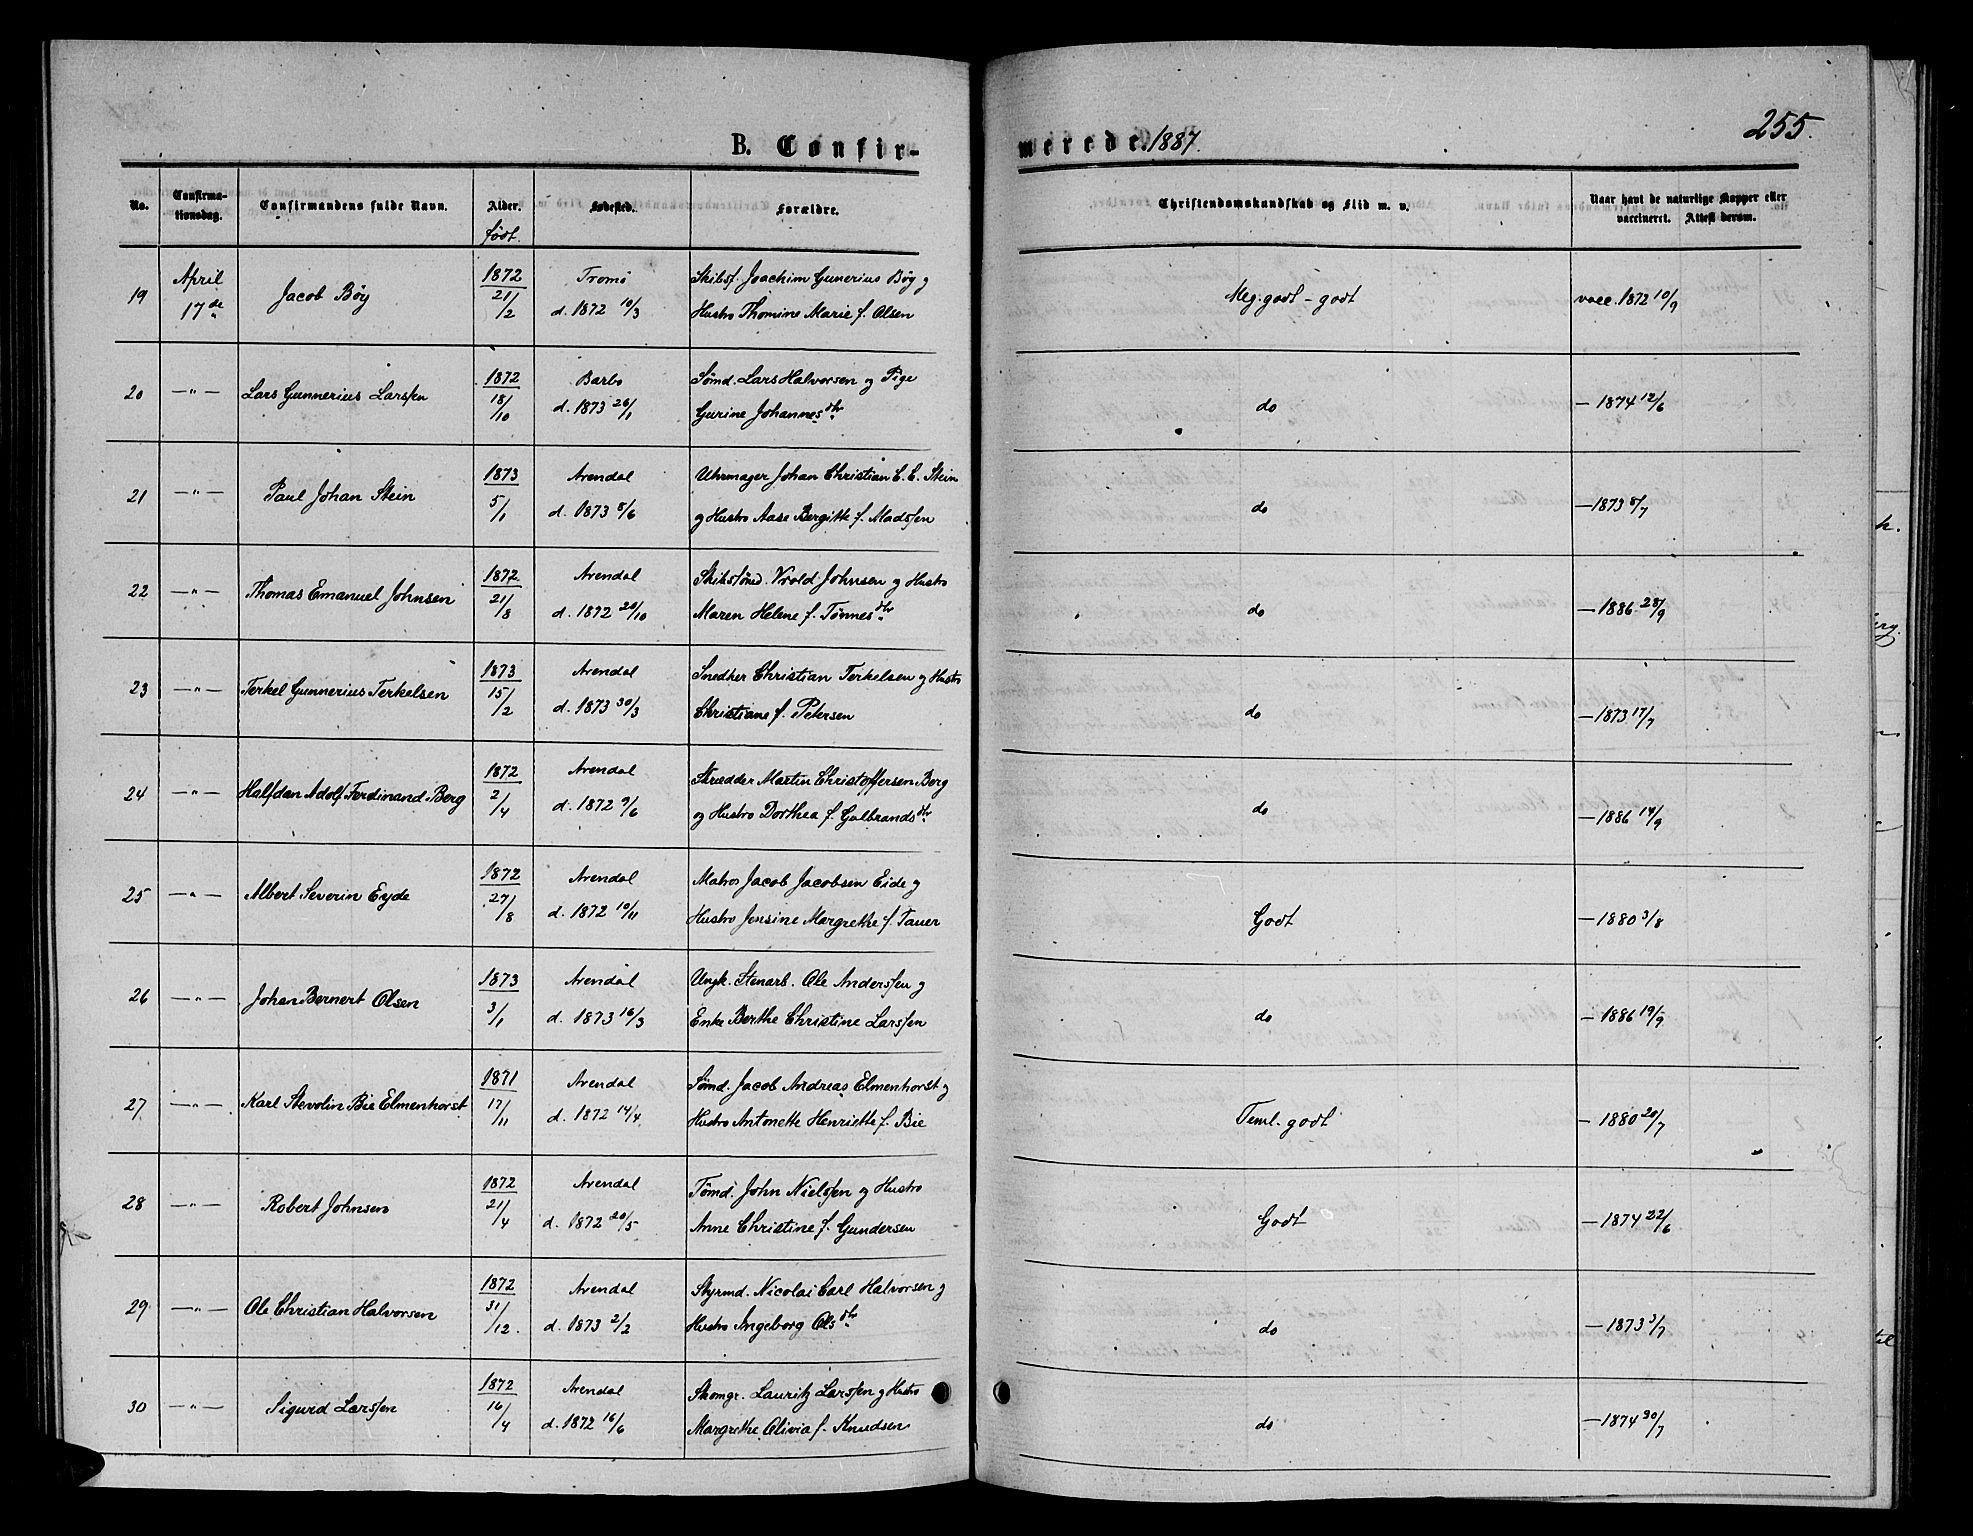 B. Confir-
merede. 1887.
255.
No.
Confirma-
tionsdag.
Confirmandens fulde Navn.
Alder.
født.
Fødested.
Forældre.
Christendomskundskab og Flid m. v.
Naar havt de naturlige Kopper eller
vaccineret. Attest derom.
19 April 17de Jacob Bøy 1872 21/2 Tromø d. 1872 10/3 Skibsf. Joachim Gunerius Bøy og
Hustro Thomine Marie f. Olsen Meg. godt - godt vacc. 1872 10/9
20 —"— Lars Gunnerius Larssen 1872 18/10 Barbo d. 1873 26/1 Sømd. Lars Halvorsen og Pige
Gurine Johannesdtr do — 1874 12/6
21 —"— Paul Johan Stein 1873 5/1 Arendal d. 1873 8/6 Uhrmager Johan Christian C. C. Stein
og Hustro Aase Bergitte f. Madssen do — 1873 8/7
22 —"— Thomas Emanuel Johnsen 1872 21/8 Arendal d. 1872 20/10 Skibstømd. Vrold Johnsen og Hustro
Maren Helene f. Tønnesdtr do — 1886 28/9
23 —"— Terkel Gunnerius Terkelsen 1873 15/2 Arendal d. 1873 30/3 Snedker Christian Terkelsen og Hustro
Christiane f. Petersen do — 1873 17/7
24 —"— Halfdan Adolf Ferdinand Berg 1872 2/4 Arendal d. 1872 9/6 Skrædder Martin Christoffersen Berg
og Hustro Dorthea f. Gulbrandsdtr do — 1886 14/9
25 —"— Albert Severin Eyde 1872 27/8 Arendal d. 1872 10/11 Matros Jacob Jacobsen Eide og
Hustro Jensine Margrethe f. Tauer Godt — 1880 3/8
26 —"— Johan Bernert Olsen 1873 3/1 Arendal d. 1873 16/3 Ungk. Stenarb. Ole Anderssen og
Enke Berthe Christine Larssen do — 1886 19/9
27 —"— Karl Stevolin Bie Elmenhorst 1871 17/11 Arendal d. 1872 14/4 Sømd. Jacob Andreas Elmenhorst og
Hustro Antonette Henriette f. Bie Teml. godt — 1880 20/7
28 —"— Robert Johnsen 1872 21/4 Arendal d. 1872 20/5 Tømd. John Nielssen og Hustro
Anne Christine f. Gundersen Godt — 1874 22/6
29 —"— Ole Christian Halvorsen 1872 31/12. Arendal d. 1873 2/2 Styrmd. Nicolai Carl Halvorsen og
Hustro Ingeborg Olsdtr do — 1873 3/7
30 —"— Sigurd Larssen 1872 16/4 Arendal d. 1872 16/6 Skomgr. Lauritz Larssen og Hustro
Margrethe Olivia f. Knudsen do — 1874 30/7